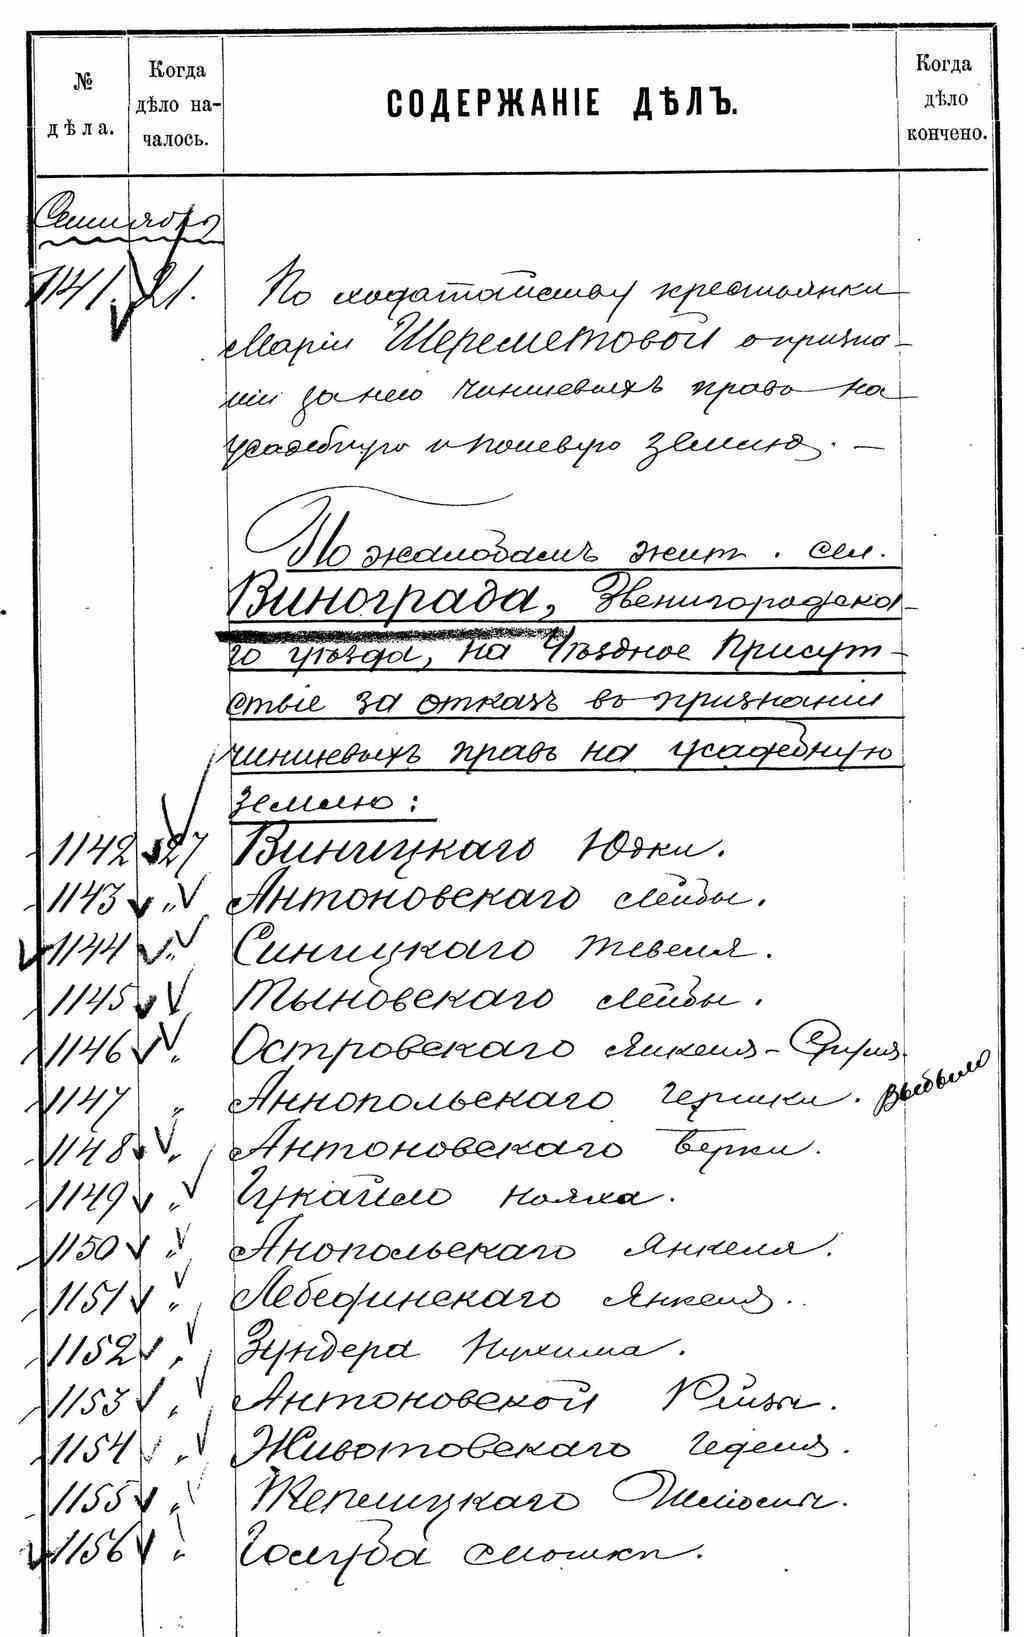 № дѣла.
Когда дѣло на-
чалось.
СОДЕРЖАНІЕ ДѢЛЪ.
Когда дѣло кончено.
Сентябрь
1141. 21. По ходатайству крестьянки
Маріи Шереметовой о призна-
ніи за нею чиншевыхъ правъ на
усадебную и полевую землю. —
По жалобамъ жит. сел.
Винограда, Звенигородска-
го уѣзда, на Уѣздное Присут-
ствіе за отказъ въ признаніи
чиншевыхъ правъ на усадебную
землю:
1142 27 Винницкаго Юдки.
1143 „ Антоновскаго Лейбы.
1144 „ Синицкаго Тевеля.
1145 Тыновскаго Лейбы.
1146 „ Островскаго Янкеля-Сруля.
1147 „ Аннопольскаго Гершки. Выбыло
1148 „ Антоновскаго Берки.
1149 „ Гукайло
1150 „ Анопольскаго Янкеля.
1151 „ Лебединскаго Янкеля.
1152 „ Зундера Нухима.
1153 „ Антоновской Рейзы.
1154 „ Животовскаго Геделя.
1155 „ Теплицкаго
1156 „ Голуба Мошки.